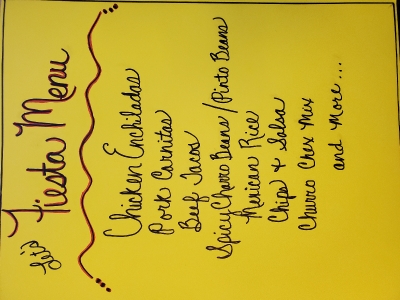 Let's
Fiesta Menu
Chicken Enchiladas
Pork Carnitas
Beef Tacos
Spicy Charro Beans/Pinto Beans
Mexican Rice
Chips & Salsa
Churro Chex Mix
and More...